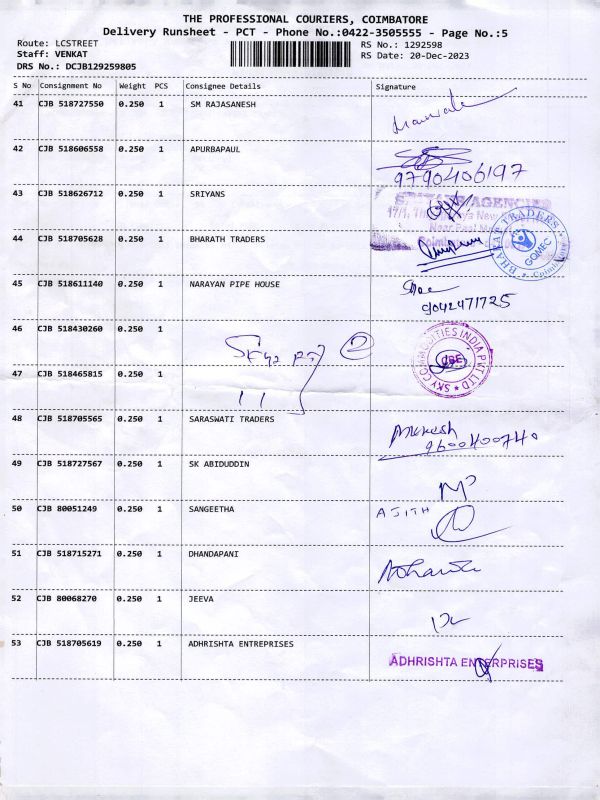 THE PROFESSIONAL COURIERS, COIMBATORE
Delivery Runsheet - PCT - Phone No.:0422-3505555 - Page No.:5
Route: LCSTREET
Staff: VENKAT
DRS No.: DCJB129259805
RS No.: 1292598
RS Date: 20-Dec-2023
S No Consignment No Weight PCS Consignee Details Signature
41 CJB 518727550 0.250 1 SM RAJASANESH
42 CJB 518606558 0.250 1 APURBAPAUL
9790406197
43 CJB 518626712 0.250 1 SRIYANS
AGENCIES
44 CJB 518705628 0.250 1 BHARATH TRADERS
BHARAT TRADERS
GQMEC
Coimbatore
45 CJB 518611140 0.250 1 NARAYAN PIPE HOUSE
9042471725
46 CJB 518430260 0.250 1
2
SKY COMMODITIES INDIA PVT LTD
CBE
47 CJB 518465815 0.250 1
48 CJB 518705565 0.250 1 SARASWATI TRADERS
9600400740
49 CJB 518727567 0.250 1 SK ABIDUDDIN
50 CJB 80051249 0.250 1 SANGEETHA
AJITH
51 CJB 518715271 0.250 1 DHANDAPANI
52 CJB 80068270 0.250 1 JEEVA
53 CJB 518705619 0.250 1 ADHRISHTA ENTREPRISES
ADHRISHTA ENTERPRISES